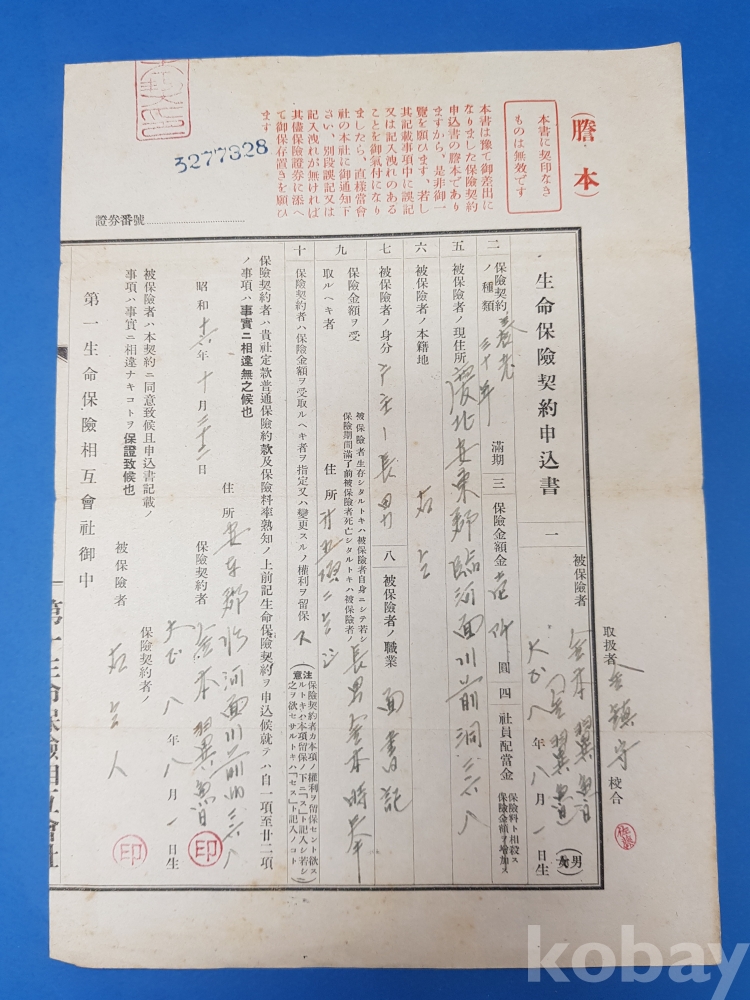 (謄本)
本書に契印なき
ものは無效です
本書は豫て御差出に
なりました保險契約
申込書の謄本であり
ますから、是非御一
覽を願ひます、若し
其記載事項中に誤記
又は記入洩れのある
ことを御氣付になり
ましたら、直樣當會
社の本社に御通知下
さい、別段誤記又は
記入洩れが無ければ
其儘保險證券に添へ
て御保存置きを願ひ
ます
3277328
證券番號
取扱者 金鎭守 校合
生命保險契約申込書
一 被保險者 金本翼魯
大正八年八月一日生
男
女
二 保險契約ノ種類 養老 三十年 滿期
三 保險金額金 壱阡 圓
四 社員配當金
保險料ト相殺ス
保險金額ヲ增加ス
五 被保險者ノ現住所 慶北安東郡臨河面川前洞二六八
六 被保險者ノ本籍地 右仝
七 被保險者ノ身分 戶主ノ長男
八 被保險者ノ職業 面書記
九 保險金額ヲ受取ルヘキ者
被保險者生存シタルトキハ被保險者自身ニシテ若シ
保險期間滿了前被保險者死亡シタルトキハ被保險者ノ
長男金本時
住所 第五項ニ仝シ
十 保險契約者ハ保險金額ヲ受取ルヘキ者ヲ指定又ハ變更スルノ權利ヲ留保 ス
注意
保險契約者カ本項ノ權利ヲ留保セント欲ス
ルトキハ本項留保ノ下ニ「ス」ト記入シ若シ
之ヲ欲セサルトキハ「セス」ト記入ノコト
保險契約者ハ貴社定款普通保險約款及保險料率熟知ノ上前記生命保險契約ヲ申込候就テハ自一項至廿二項
ノ事項ハ事實ニ相違無之候也
昭和十六年十月二十二日
住所 安東郡臨河面川前洞二六八
保險契約者 金本翼魯 印
大正八年八月一日生
被保險者ハ本契約ニ同意致候且申込書記載ノ
事項ハ事實ニ相違ナキコトヲ保證致候也
保險契約者ノ
被保險者 右仝人 印
第一生命保險相互會社御中
第一生命保險相互會社
kobay